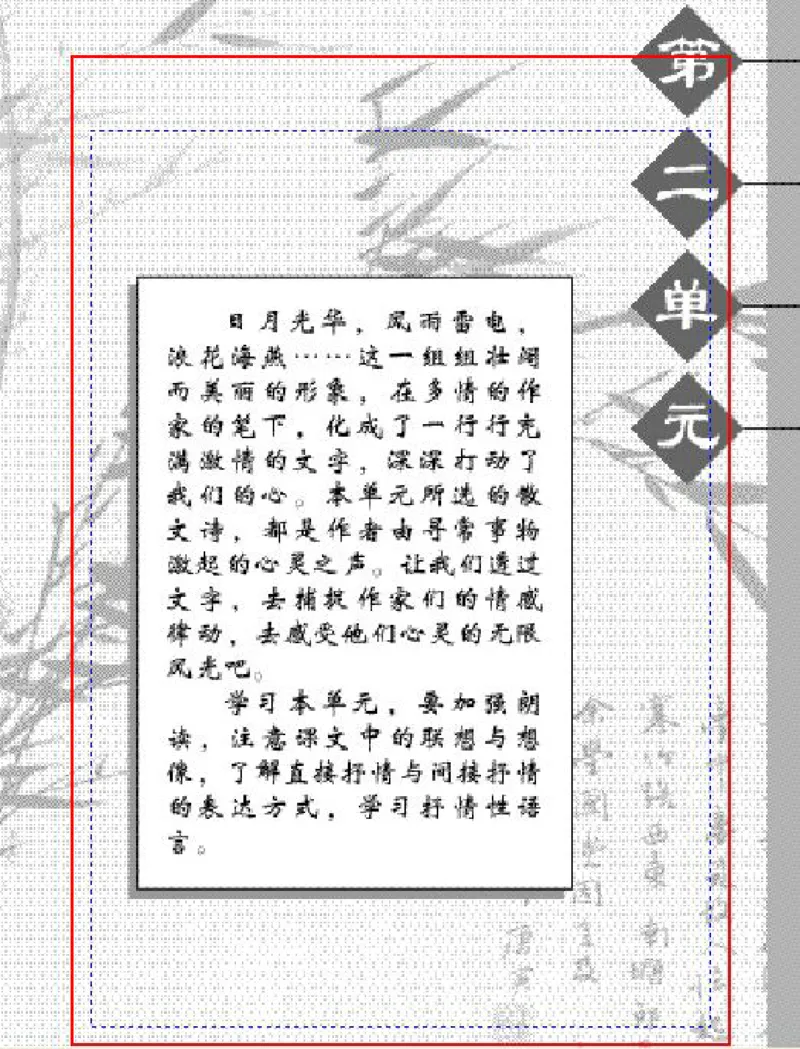 第
二
单
元
日月光华,风雨雷电,
浪花海燕……这一组组壮阔
而美丽的形象,在多情的作
家的笔下,化成了一行行充
满激情的文字,深深打动了
我们的心。本单元所选的散
文诗,都是作者由寻常事物
激起的心灵之声。让我们透过
文字,去捕捉作家们的情感
律动,去感受他们心灵的无限
风光吧。
学习本单元,要加强朗
读,注意课文中的联想与想
像,了解直接抒情与间接抒情
的表达方式,学习抒情性语
言。